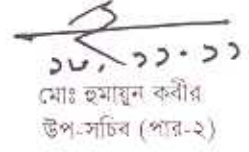 ১৮.১১.১১
মোঃ হুমায়ুন কবীর
উপ-সচিব (পার-২)